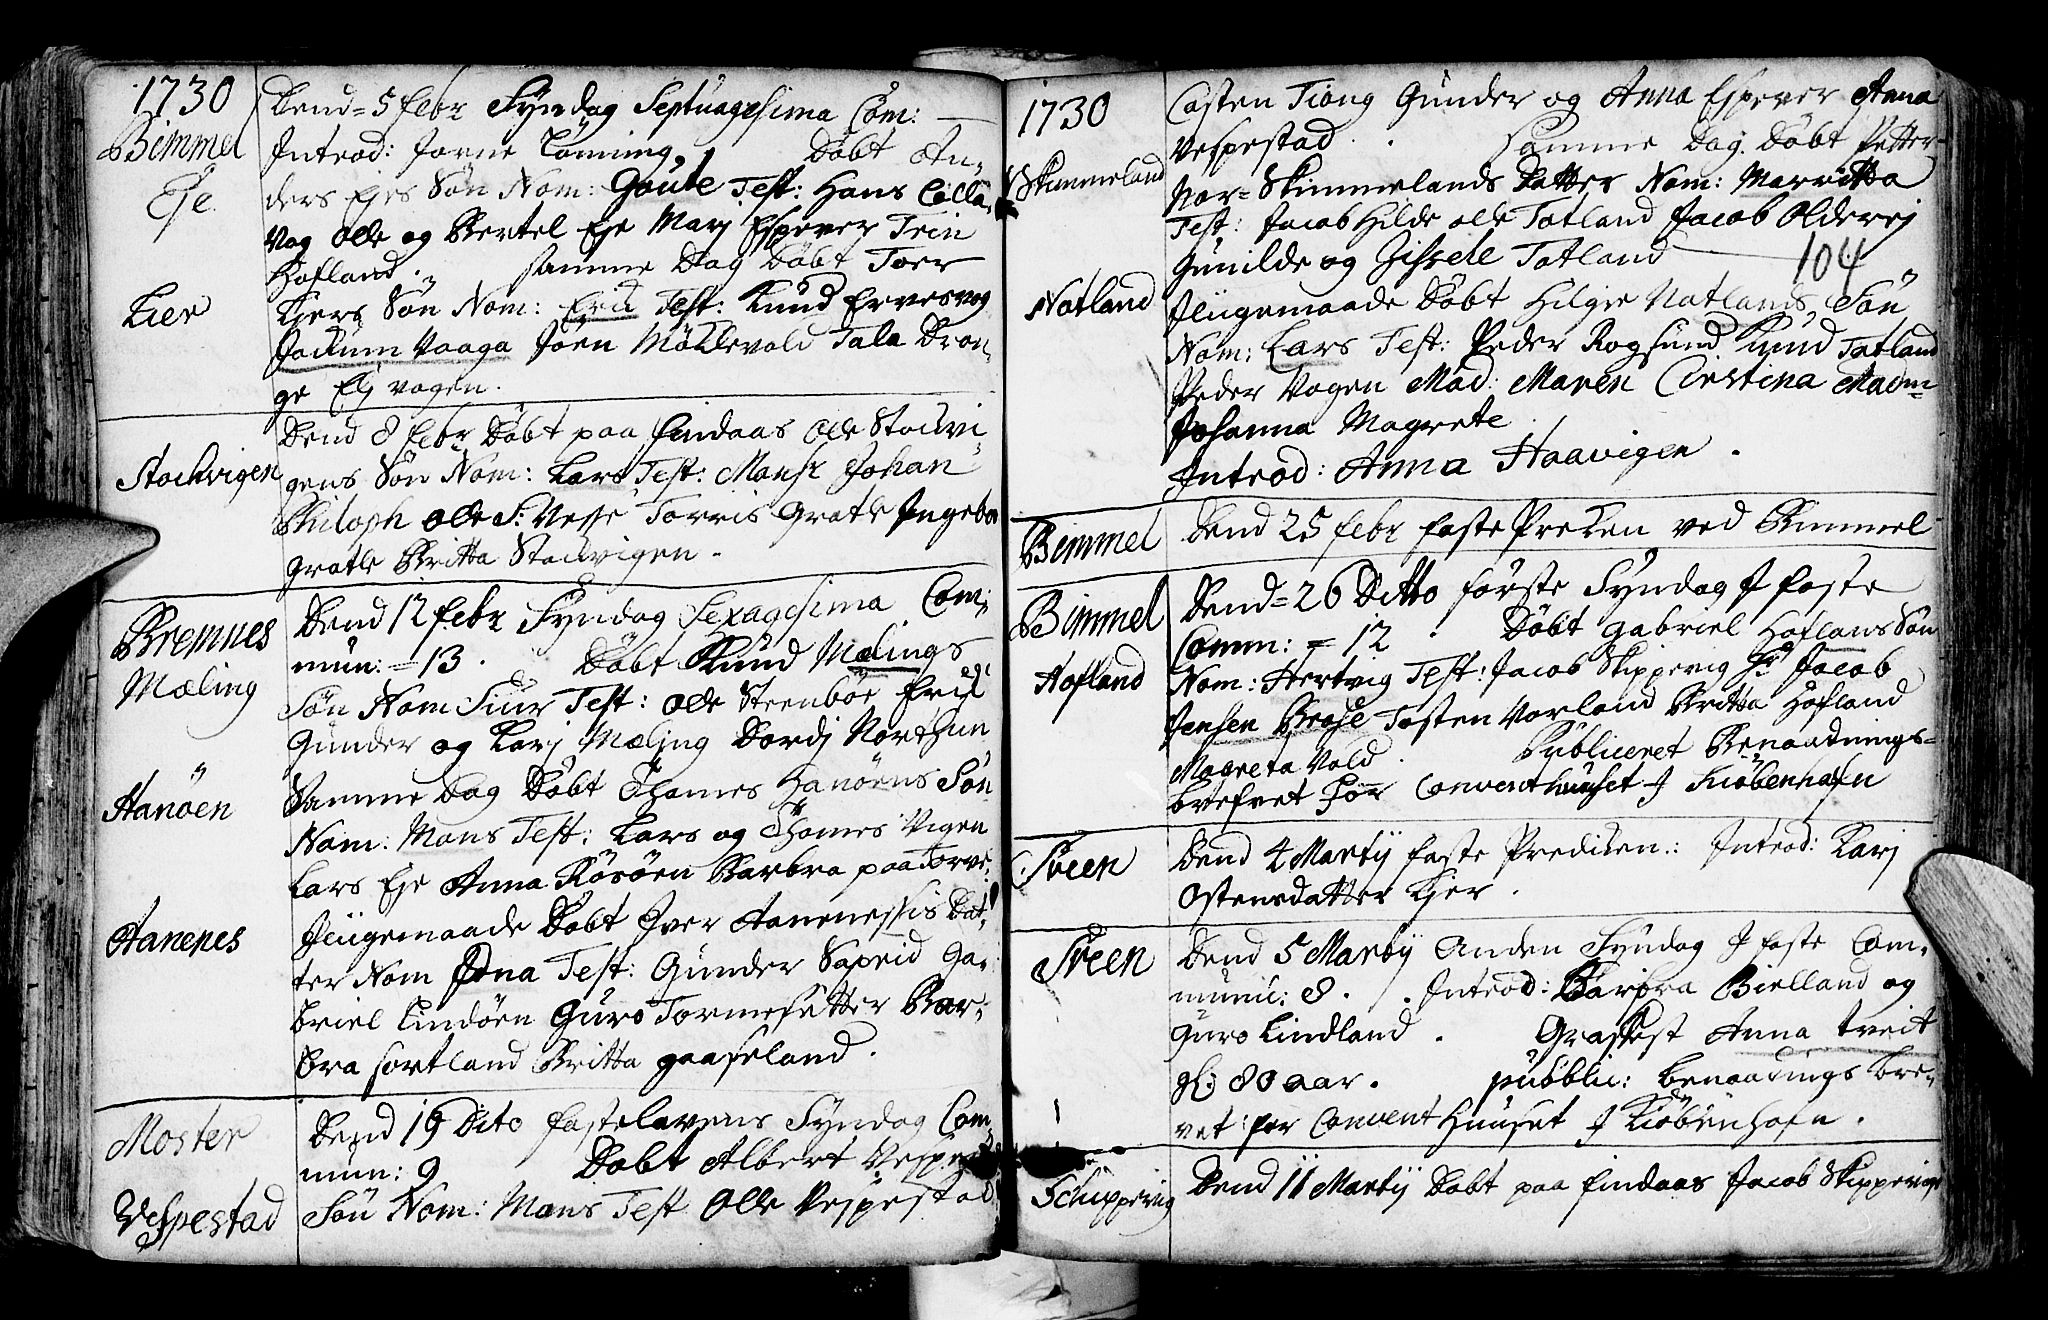 1730
Bimmel
Eje
Kier
Stockvigen
Bremnes
Mæling
Hanöen
Hanenes
Moster
Vespestad
Dend= 5 febr Syndag Septuagesima Com:
Introd: Lönning. Döbt An-
ders Ejes Sön Nom: Goute Test: Hans
vog Olle og Bertel Eje Marj Espever Trin
Hofland. Samme Dag Döbt Toer
Kiers Sön Nom: Eric Test: Knud Ervesvog
Jockum Vaaga Joen Möklevold Tala Dron-
ge Elj vogen.
Dend 8 febr Döbt paa findaas Olle Stockvi
gens Sön Nom: Lars Test: Monsr Johan
Philoph Olle S: Vesse Torris Gratle Ingebor
Gratle Britta Stockvigen.
Dend 12 febr Syndag Sexagesima Com-
mun: = 13. Döbt Knud Mælings
Sön Nom Siur Test: Olle Steenböe Eric
Gunder og Karj Mæling Dordj Northun
Samme Dag Döbt Thomes Hanöens Sön
Nom: Mons Test: Lars og Thomes Vigen
Lars Eje Anna Rösöen Barbra paa Torve
Iligemaade Döbt Iver Hanenessis Dat-
ter Nom Edna Test: Gunder Saxeid Ga-
briel Lindöen Guro Tormesetter Bar-
bra sortland Britta gaaseland.
Dend 19 Dito fastelavens Syndag Com-
mun: 9 Döbt Albert
Sön Nom: Mons Test Olle Vespestad
1730
Skimmeland
Notland
Bimmel
Bimmel
Hofland
Sveen
Sveen
Schippevig
Casten Tiong Gunder og Anna Espever Anna
Vespestad. Samme Dag Döbt Petter
Nor= Skimmelands Datter Nom: Marritta
Test: Jacob Hilde olle Totland Jacob Olderej
Gunilde og Zissele Totland
104
Iligemaade Döbt Hilge Notlands Sön
Nom: Lars Test: Peder Rogsund Knud Totland
Peder Vogen Mad: Maren Cirstina Madm-
Johanna Magrete
Introd: Anna Haavigen.
Dend 25 febr faste Preken ved Bimmel
Dend= 26 Ditto förste Syndag I faste
Comm: = 12. Döbt Gabriel Hoflans Sön
Nom: Hertvig Test: Jacob Skippevig Hr Jacob
Jensen Brose Tosten Vorland Britta Hofland
Magreta Vold. Publiceret Benaadnings=
brefvet for Conventhuuset I Kiöbenhafn
Dend 4 Martij faste Predicken.: Introd: Karj
Ostensdatter Kier.
Dend 5 Martij Anden Syndag I faste Com-
muni: 8. Introd: Barbra Bielland og
Guro Lindland. Grafest Anna treit
gl: 80 aar. pubblic: benaadings bre-
vet for Convent Huuset I Kiöbenhafn.
Dend 11 Martij Döbt paa findaas Jacob Skippevigs